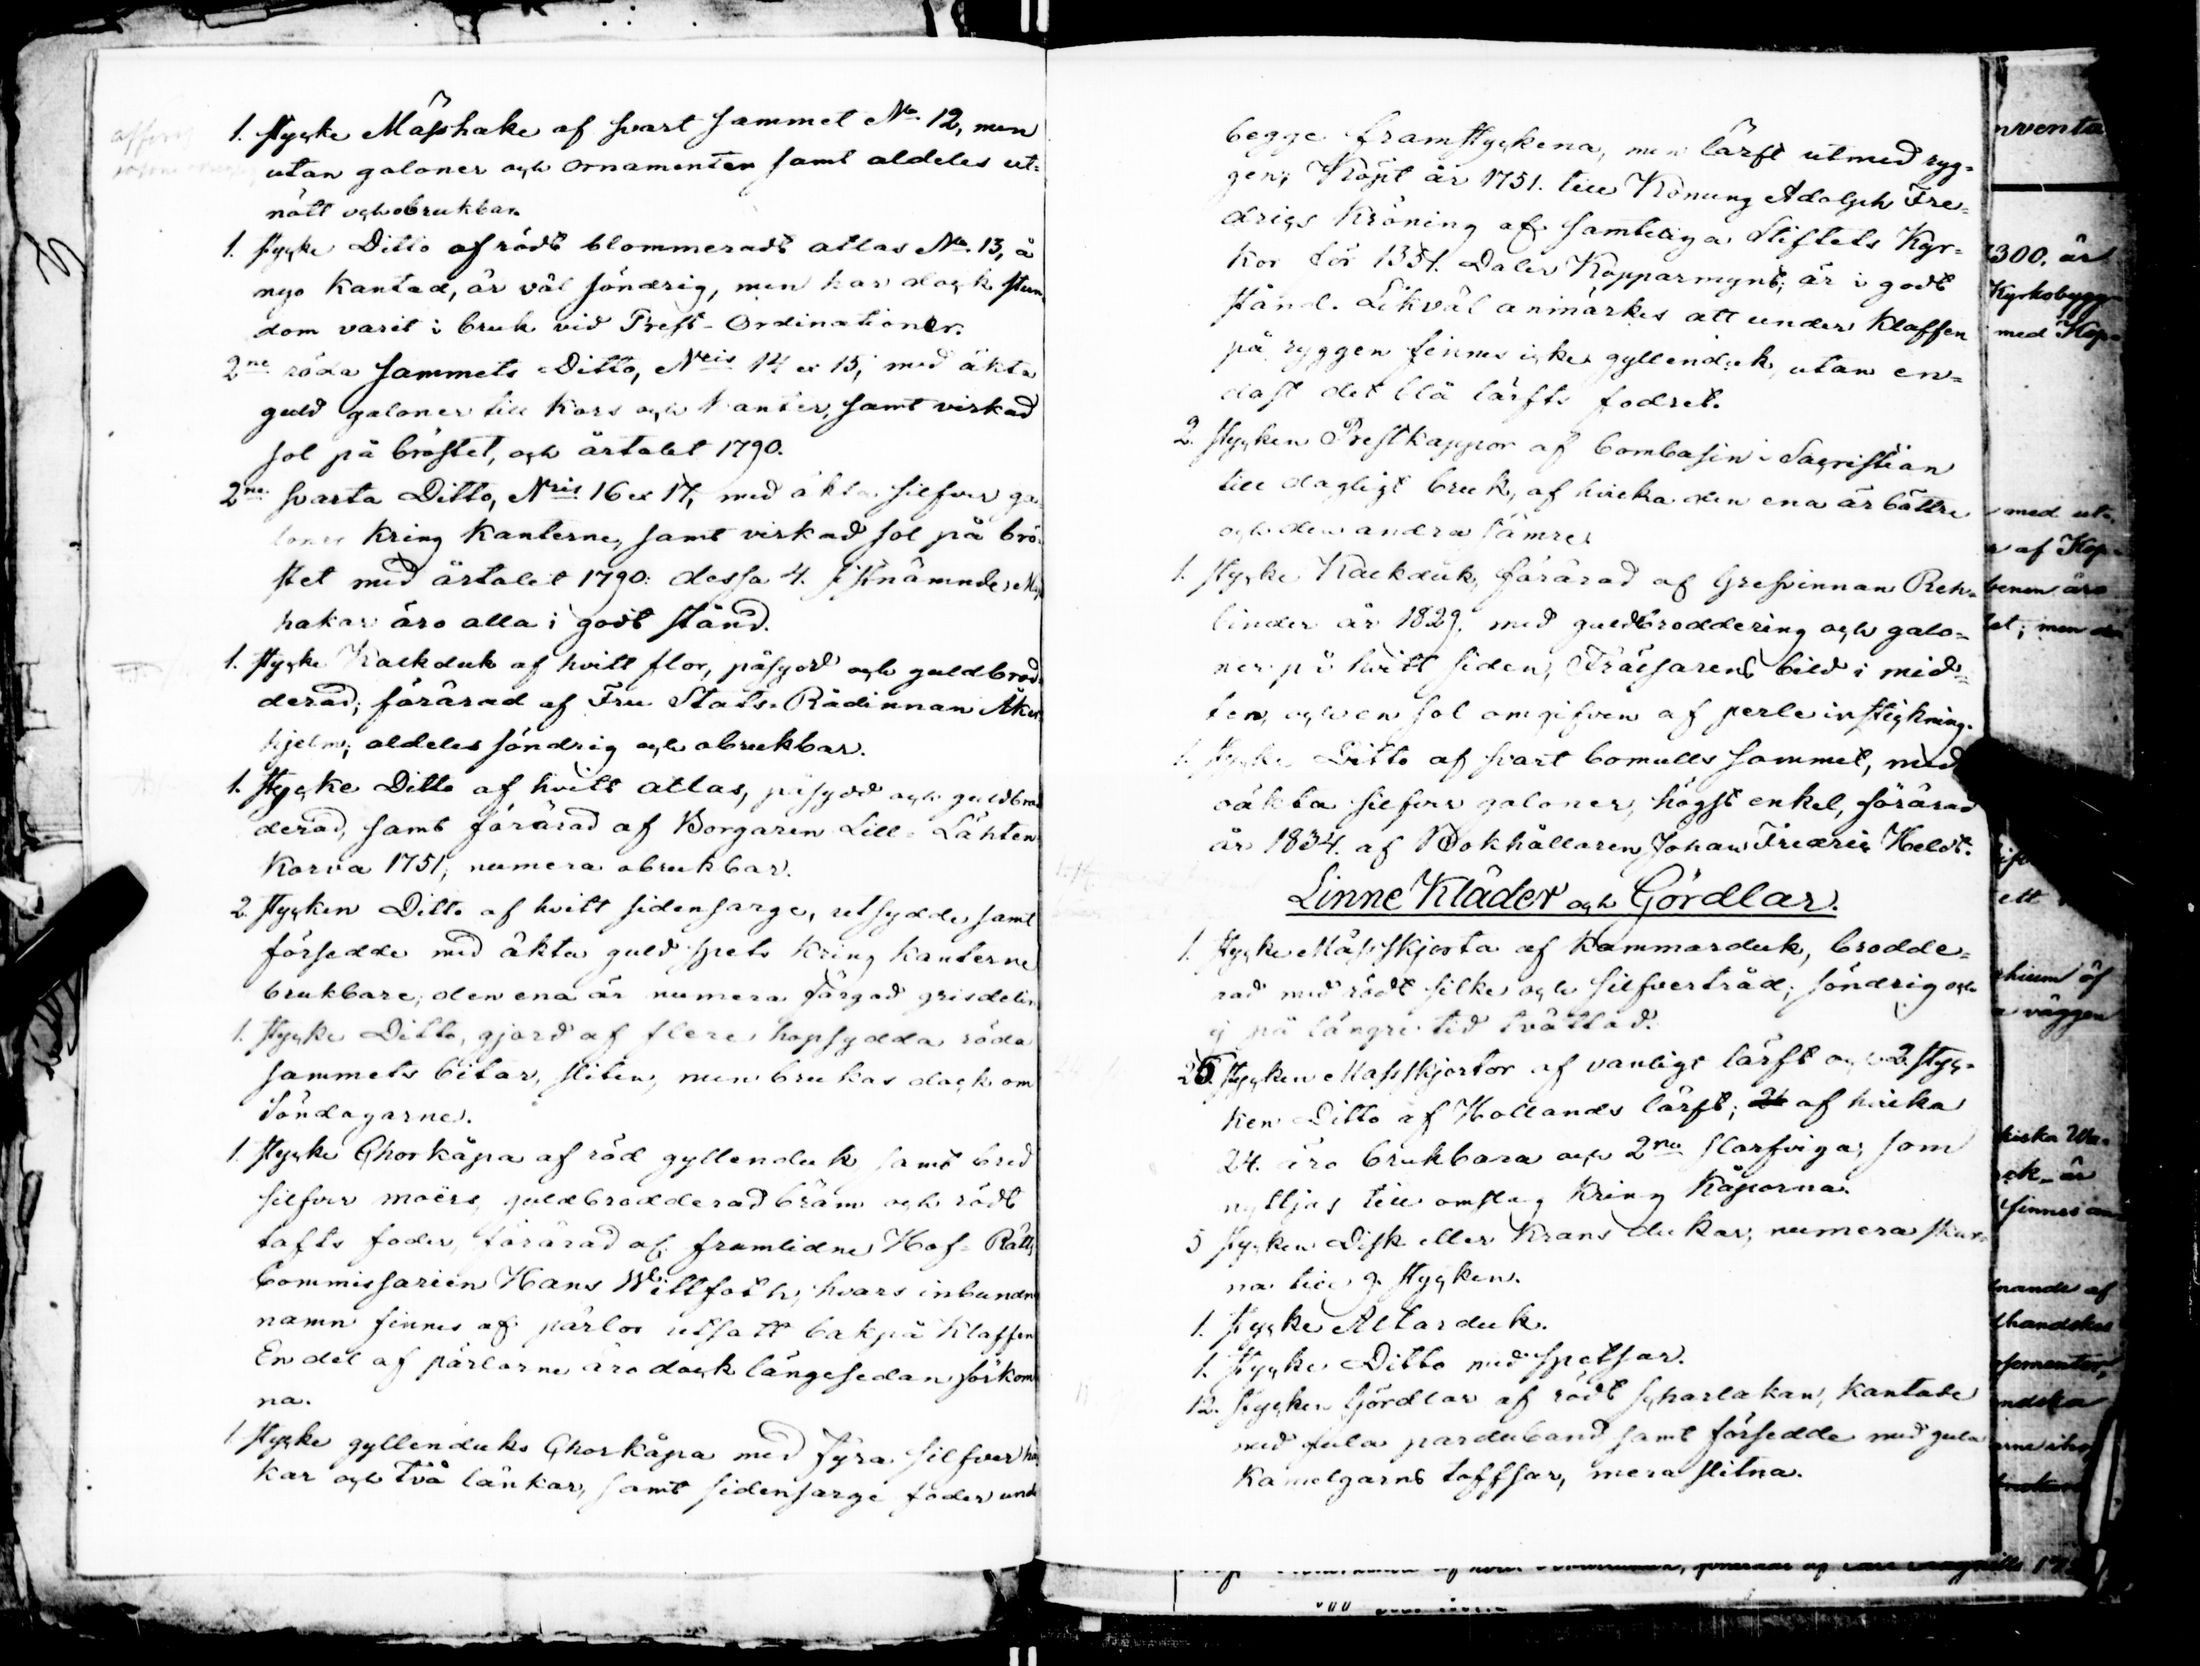 1. stycke Mässhake af svart sammet No. 12, men
utan galoner och ornamenten samt aldeles ut-
nött och obrukbar.
1. stycke Ditto af rödt blommeradt atlas No. 13, å
nyo kantad, är väl söndrig, men har dock stun
dom varit i bruk vid Prest-Ordinationer.
2ne röda sammets Ditto, Nris 14 et 15, med äkta
guld galoner till kors och kanter, samt virkad
sol på bröstet, och årtalet 1790.
2ne svarta Ditto, Nris 16 et 17, med äkta silfver ga
loner kring kanterne, samt virkad sol på brö-
stet med årtalet 1790: dessa 4. sistnämnde Mäss
hakar äro alla i godt stånd.
1. stycke Kalkduk af hvitt flor, påsydd och guldbrod-
derad, förärad af Fru Stats-Rådinnan Åker
hjelm; aldeles söndrig och obrukbar.
1. stycke Ditto af hvitt atlas, påsydd och guldbrod
derad, samt förärad af Borgaren Lill-Lähten
korva 1751, numera obrukbar.
2. stycken Ditto af hvitt sidensarge, utsydde samt
försedde med äkta guld spets kring kanterne
brukbare; den ena är numera färgad grisdelin
1. stycke Ditto, gjord af flere hopsydda röda
sammets bitar, sliten, men brukas dock om
Söndagarne.
1. stycke Chorkåpa af röd gyllenduk samt bred
silfver moërs, guldbrodderad bräm och rödt
tafts foder, förärad af framlidne Hof-Rätts
Commissarien Hans Wittfoth, hvars inbundne
namn finnes af pärlor utsatt bakpå klaffen
En del af pärlorne äro dock längesedan förkom
na.
1. stycke gyllenduks Chorkåpa med fyra silfver ha
kar och två länkar, samt sidensarge foder unde
begge framstyckena, men lärft utmed ryg-
gen; Köpt år 1751. till Konung Adolph Fre-
drics Kröning af samtliga Stiftets Kyr-
kor för 1351. Daler Kopparmynt; är i godt
stånd. Likväl anmärkes att under klaffen
på ryggen finnes icke gyllenduk, utan en-
dast det blå lärfts fodret.
2. stycken Prestkappor af bombasin i Sacristian
till dagligt bruk, af hvilka den ena är bättre
och den andra sämre.
1. stycke Kalkduk, förärad af Grefvinnan Reh-
binder år 1829. med guldbroddering och galo-
ner på hvitt siden, Frälsarens bild i mid-
ten, och en sol omgifven af perle instickning.
1. stycke Ditto af svart bomulls sammet, med
oäkta silfver galoner, högst enkel, förärad
år 1834. af Bokhållaren Johan Fredric Heldt.
Linne Kläder och Gördlar.
1. stycke Mässkjorta af kammarduk, brodde-
rad med rödt silke och silfvertråd; söndrig och
ej på längre tid tvättad.
26. stycken Mässkjortor af vanligt lärft och 2. styc-
ken Ditto af Hollands lärft; af hvilka
24. äro brukbara och 2ne slarfviga, som
nyttjas till omslag kring kåporna.
5 stycken Disk eller Krans dukar; numera skur-
na till 9. stycken.
1. stycke Altarduk.
1. stycke Ditto med spetsar.
12. stycken Gördlar af rödt scharlakan, kantade
med gula parduband samt försedde med gula
kamelgarns toffsar, mera slitna.
300. är
Kyrkobygg
med Kop-
med ut-
af Kop-
benen äro